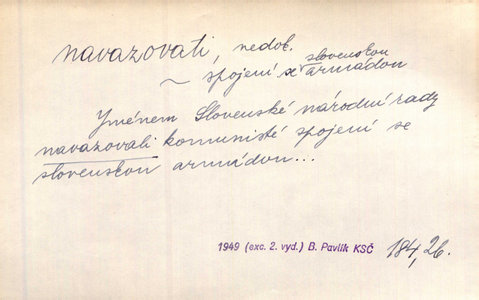 navazovati, nedok.
~ spojení se slovenskou armádou
Jménem Slovenské národní rady
navazovali komunisté spojení se
slovenskou armádou...
1949 (exc. 2. vyd.) B. Pavlík KSČ 184,26.